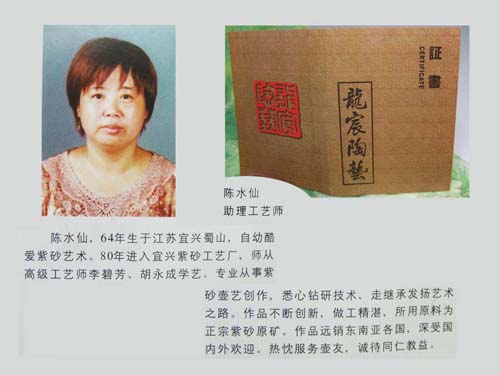 証書
CERTIFICATE
龍宸陶藝
陈水仙
助理工艺师
陈水仙，64年生于江苏宜兴蜀山，自动酷
爱紫砂艺术。80年进入宜兴紫砂工艺厂，师从
高级工艺师李碧芳、胡永成学艺。专业从事紫
砂壶艺创作，悉心钻研技术，走继承发扬艺术
之路。作品不断创新，做工精湛，所用原料为
正宗紫砂原矿。作品远销东南亚各国，深受国
内外欢迎。热忱服务壶友，诚待同仁教益。